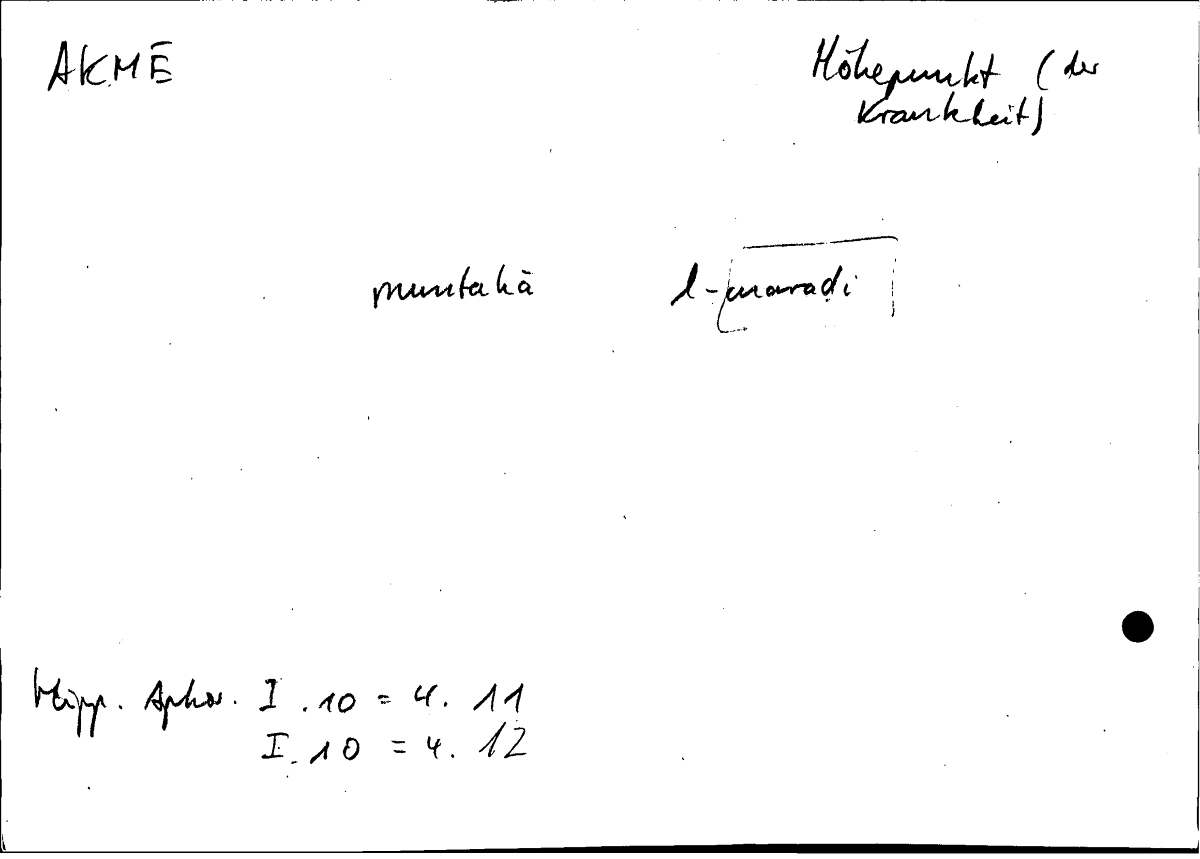 AKMĒ
Höhepunkt (der
Krankheit)
muntahā l-maraḍi
Hipp. Aphor. I.10 = 4. 11
I.10 = 4. 12